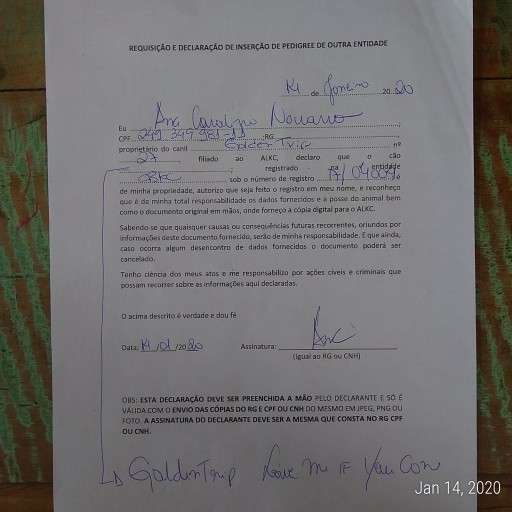 REQUISIÇÃO E DECLARAÇÃO DE INSERÇÃO DE PEDIGREE DE OUTRA ENTIDADE
14 de Janeiro 20 20
Eu Ana Carolina
CPF 249 349 981-11 RG
proprietário do canil Golden Trip nº
27 filiado ao ALKC, declaro que o cão
registrado na entidade
CBKC sob o número de registro
de minha propriedade, autorizo que seja feito o registro em meu nome, e reconheço
que é de minha total responsabilidade os dados fornecidos e a posse do animal bem
como o documento original em mãos, onde forneço a cópia digital para o ALKC.
Sabendo-se que quaisquer causas ou consequências futuras recorrentes, oriundos por
informações deste documento fornecido, serão de minha responsabilidade. E que ainda,
caso ocorra algum desencontro de dados fornecidos o documento poderá ser
cancelado.
Tenho ciência dos meus atos e me responsabilizo por ações cíveis e criminais que
possam recorrer sobre as informações aqui declaradas.
O acima descrito é verdade e dou fé
Data: 14 / 01 /20 20 Assinatura:
(igual ao RG ou CNH)
OBS: ESTA DECLARAÇÃO DEVE SER PREENCHIDA A MÃO PELO DECLARANTE E SÓ É
VÁLIDA COM O ENVIO DAS CÓPIAS DO RG E CPF OU CNH DO MESMO EM JPEG, PNG OU
FOTO. A ASSINATURA DO DECLARANTE DEVE SER A MESMA QUE CONSTA NO RG CPF
OU CNH.
Golden Trip Love Me IF You Can
Jan 14, 2020